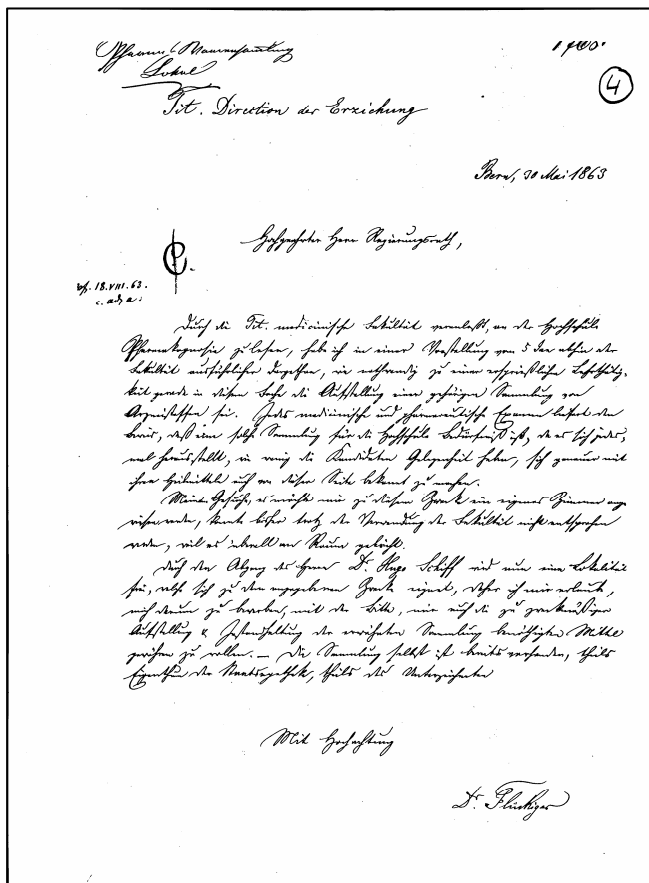 Pharm. Waarensamlung
Lokal
4
Tit. Direction der Erziehung
Bern, 30 Mai 1863
Hochgeehrter Herr Regierungsrath,
18.VIII.63.
c. ad a.
Durch die Tit. medicinische Fakultät veranlaßt, an der Hochschule
Pharmakognosie zu lesen, habe ich in einer Vorstellung von 5 der
Fakultät ausführlicher dargethan, wie nothwendig zu einer ersprießlichen Lehrthätig-
keit gerade in diesem Fache die Aufstellung einer gehörigen Sammlung von
Arzneistoffen sei. Jedes medicinische und pharmaceutische Examen liefert den
Beweis, daß eine solche Sammlung für die Hochschule Bedürfniß ist, da es sich jedes-
mal herausstellt, wie wenig die Kandidaten Gelegenheit haben, sich genauer mit
ihren Heilmitteln auch von dieser Seite bekannt zu machen.
Meinem Gesuche, es möchte mir zu diesem Zweck ein eigenes Zimmer ange
wiesen werden, konnte bisher trotz der Verwendung der Fakultät nicht entsprochen
werden, weil es überall an Raum gebricht.
Durch den Abgang des Herrn Dr. Hugo Schiff wird nun eine Lokalität
frei, welche sich zu dem angegebenen Zwecke eignet, daher ich mir erlaube,
mich darum zu bewerben, mit der Bitte, mir auch die zu zweckmäßiger
Aufstellung & Instandhaltung der erwähnten Sammlung benöthigten Mittel
gewähren zu wollen. — Die Sammlung selbst ist bereits vorhanden, theils
Eigenthum der Staatsapothek, theils des Unterzeichneten
Mit Hochachtung
Dr. Flückiger